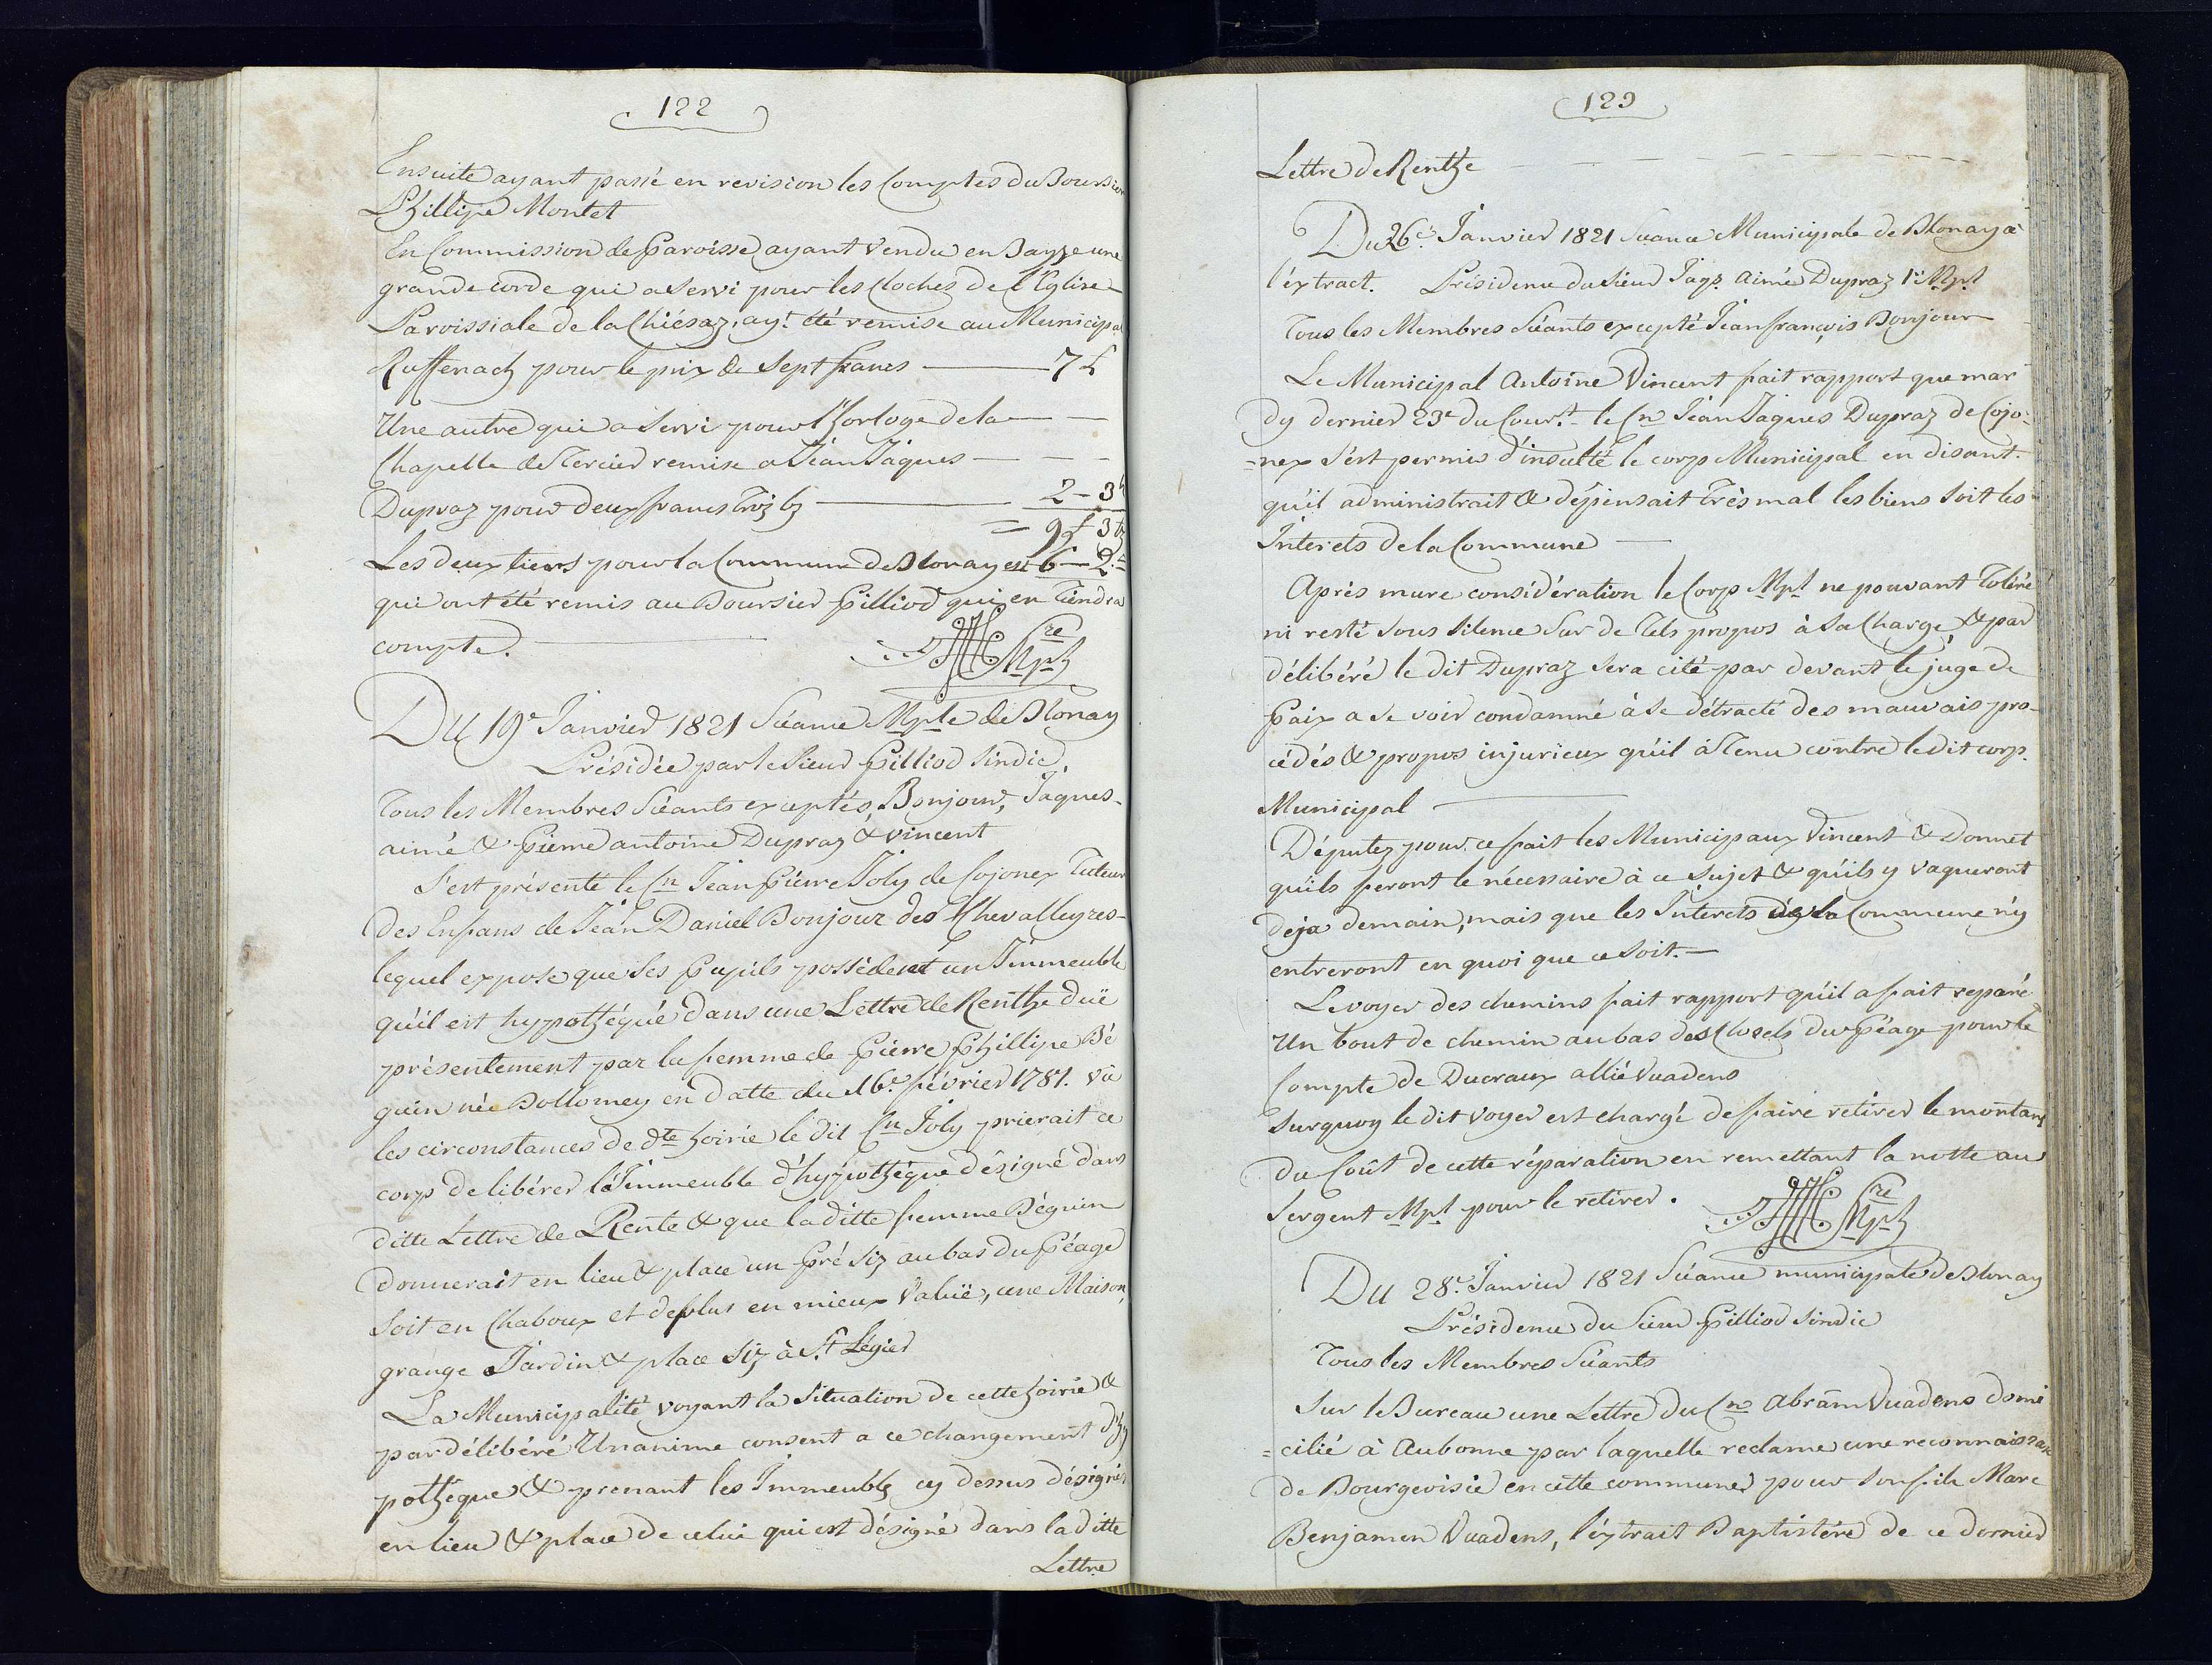 122
Ensuite ayant passé en revision les Comptes du Boursier
Phillipe Montet
En Commission de Paroisse ayant vendu en Bayze une
grande corde qui a servi pour les Cloches de l'Eglise
Paroissiale de la Chiésaz, ayt. été remise au Municipal
Ruffenach pour le prix de Sept francs — 7 f
Une autre qui a servi pour l'horloge de la
Chapelle de Tercier remise a Jean Jaques
Dupraz pour deux francs troiz bz — 2 - 3
= 9 f 3 bz
Les deux tiers pour la Commune de Blonay est 6 - 2
qui ont été remis au Boursier Pilliod qui en tiendra
compte.
Mpl
Du 19e Janvier 1821 Séance Mple de Blonay
Présidée par le Sieur Pilliod Sindic,
Tous les Membres Séants exceptés, Bonjour, Jaques
aimé & Pierre antoine Dupraz & vincent
S'est présenté le Cn Jean Pierre Joly de Cojonex Tuteur
des Enfans de Jean Daniel Bonjour des Chevalleyres
lequel expose que ses Pupils possèdent un Immeuble
qu'il est hypothéqué dans une Lettre de Renthe duë
présentement par la femme de Pierre Phillipe Bé
guin née Dollomey en datte du 16e. février 1781. vû
les circonstances de dte hoirie le dit Cn Joly prierait ce
corps de libérer l'Immeuble d'hypothéque désigné dans
ditte Lettre de Rente & que la ditte femme Béguin
donnerait en lieu & place un Pré siz au bas du Péage
soit en Chaboux et deplus en mieux Valuë, une Maison,
grange Jardin & place siz à St Légier
La Municipalité voyant la Situation de cette hoirie &
par délibéré Unanime consent a ce changement d'hy
pothéque & prenant les Immeubles cy dessus désignés
en lieu & place de celui qui est désigné dans la ditte
Lettre
123
Lettre de Renthe
Du 26e. Janvier 1821 Séance Municipale de Blonay à
l'éxtract. Présidence du Sieur Jaqs. Aimé Dupraz 1er Mpl
Tous les Membres Séants excepté Jean françois Bonjour
Le Municipal Antoine Vincent fait rapport que mar
dy dernier 23e du Court. le Cn Jean Jaques Dupraz de Cojo=
=nex s'ést permis d'insulté le corp Municipal en disant
qu'il administrait & dépensait très mal les biens soit les
Interets de la Commune —
Après mure considération le Corp Mpl ne pouvant Toléré
ni resté sous silence sur de Tels propos à sa Charge & par
délibéré le dit Dupraz sera cité par devant le juge de
Paix a se voir condamné à se détracté des mauvais pro-
cédés & propos injurieux qu'il à Tenu contre le dit corp.
Municipal —
Députez pour ce fait les Municipaux Vincent & Donnet
qu'ils feront le nécessaire à ce sujet & qu'ils y vaqueront
deja demain, mais que les Interets de la Commune n'y
entreront en quoi que ce soit. —
Le voyer des chemins fait rapport qu'il a fait reparé
Un bout de chemin au bas des Closels du Péage pour le
Compte de Ducraux allié Vuadens
Surquoy le dit voyer est chargé de faire retirer le montant
du Coût de cette réparation en remettant la notte au
Sergent Mpl pour le retirer.
Mpl
Du 28e. Janvier 1821 Séance municipale de Blonay
Présidence du Sieur Pilliod Sindic
Tous les Membres Séants
Sur le Bureau une Lettre du Cn Abram Vuadens domi
=cilié à Aubonne par laquelle reclame une reconnaissance
de Bourgeoisie en cette commune pour son fils Marc
Benjamen Vuadens, l'éxtrait Baptistére de ce dernier